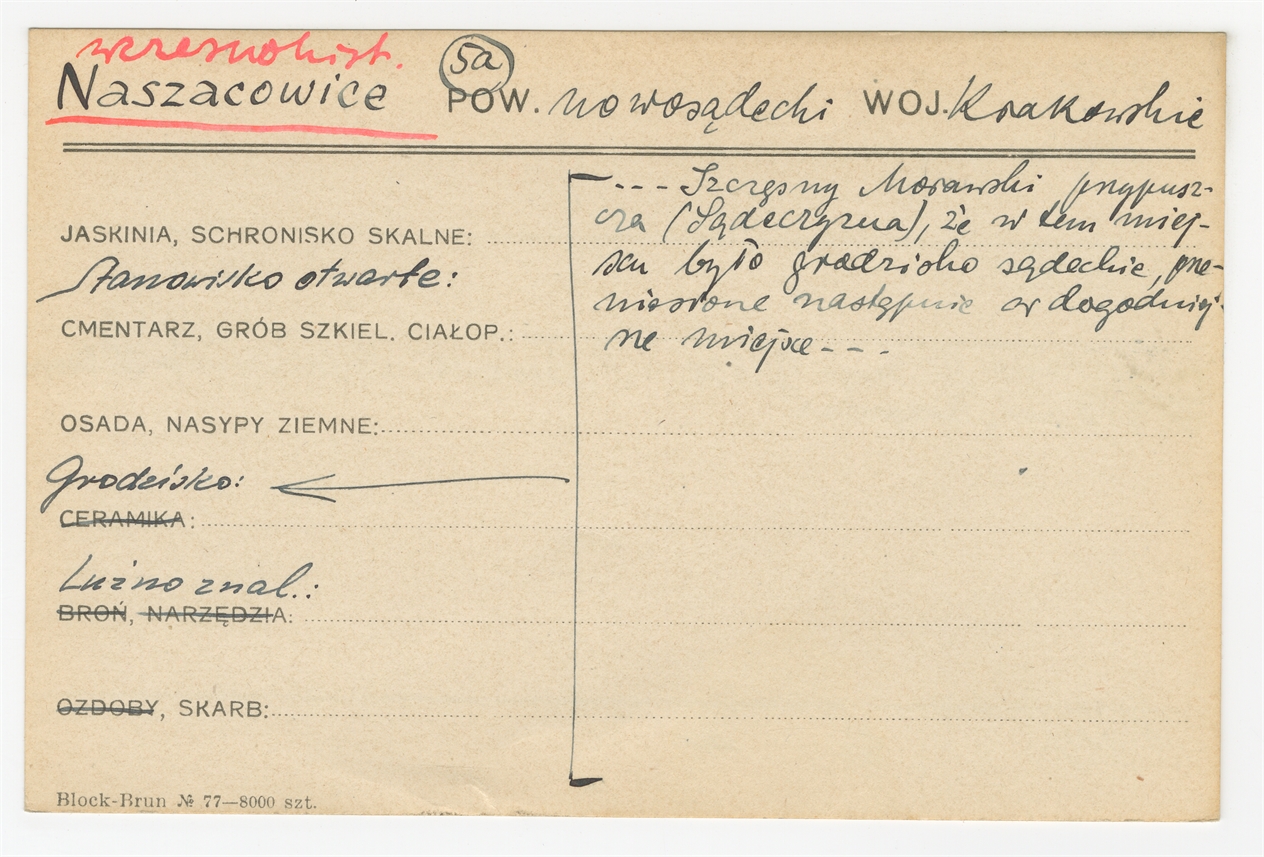 wczesnohist.
Naszacowice 5a POW. nowosądecki WOJ. Krakowskie
--- Szczęsny Morawski przypusz-
cza (Sądeczyzna), że w tem miej-
JASKINIA, SCHRONISKO SKALNE:
scu było grodzisko sądeckie, prze-
Stanowisko otwarte:
niesione następnie w dogodniej-
CMENTARZ, GRÓB SZKIEL. CIAŁOP.:
sze miejsce - - -
OSADA, NASYPY ZIEMNE:
Grodzisko:
CERAMIKA:
Luźno znal.:
BROŃ, NARZĘDZIA:
OZDOBY, SKARB:
Block-Brun № 77—8000 szt.